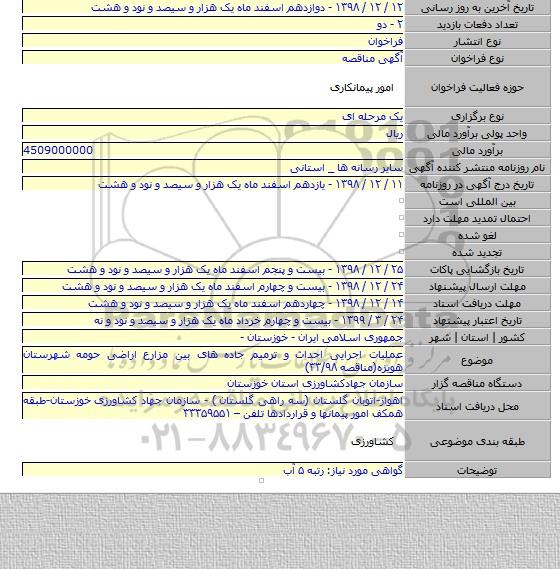 تاریخ آخرین به روز رسانی ۱۲ / ۱۲ / ۱۳۹۸ - دوازدهم اسفند ماه یک هزار و سیصد و نود و هشت
تعداد دفعات بازدید ۲ - دو
نوع انتشار فراخوان
نوع فراخوان آگهی مناقصه
حوزه فعالیت فراخوان امور پیمانکاری
نوع برگزاری یک مرحله ای
واحد پولی برآورد مالی ریال
برآورد مالی 4509000000
نام روزنامه منتشر کننده آگهی سایر رسانه ها _ استانی
تاریخ درج آگهی در روزنامه ۱۱ / ۱۲ / ۱۳۹۸ - یازدهم اسفند ماه یک هزار و سیصد و نود و هشت
بین المللی است
احتمال تمدید مهلت دارد
لغو شده
تجدید شده
تاریخ بازگشایی پاکات ۲۵ / ۱۲ / ۱۳۹۸ - بیست و پنجم اسفند ماه یک هزار و سیصد و نود و هشت
مهلت ارسال پیشنهاد ۲۴ / ۱۲ / ۱۳۹۸ - بیست و چهارم اسفند ماه یک هزار و سیصد و نود و هشت
مهلت دریافت اسناد ۱۴ / ۱۲ / ۱۳۹۸ - چهاردهم اسفند ماه یک هزار و سیصد و نود و هشت
تاریخ اعتبار پیشنهاد ۲۴ / ۳ / ۱۳۹۹ - بیست و چهارم خرداد ماه یک هزار و سیصد و نود و نه
کشور | استان | شهر جمهوری اسلامی ایران - خوزستان -
موضوع عملیات اجرایی احداث و ترمیم جاده های بین مزارع اراضی حومه شهرستان
هویزه(مناقصه ۳۳/۹۸)
دستگاه مناقصه گزار سازمان جهادکشاورزی استان خوزستان
محل دریافت اسناد اهواز-اتوبان گلستان (سه راهی گلستان ) - سازمان جهاد کشاورزی خوزستان-طبقه
همکف امور پیمانها و قراردادها تلفن – ۳۳۳۵۹۵۵۱
طبقه بندی موضوعی کشاورزی
توضیحات گواهی مورد نیاز: رتبه ۵ آب
۰۲۱-۸۸۳۴۹۶۷۰-۵